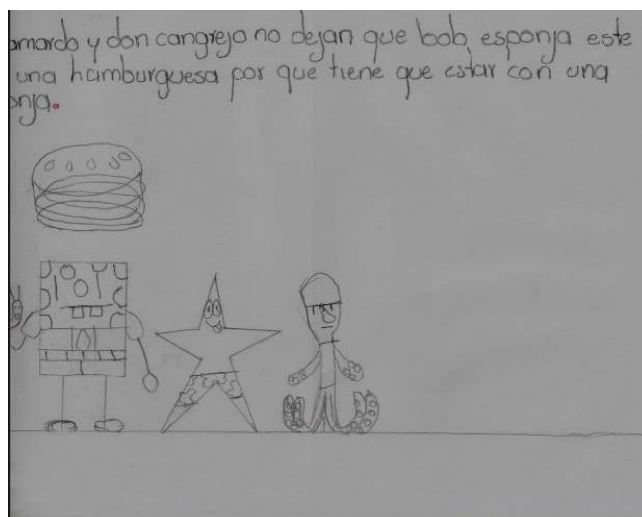 amardo y don cangrejo no dejan que bob esponja este
una hamburguesa por que tiene que estar con una
onja.